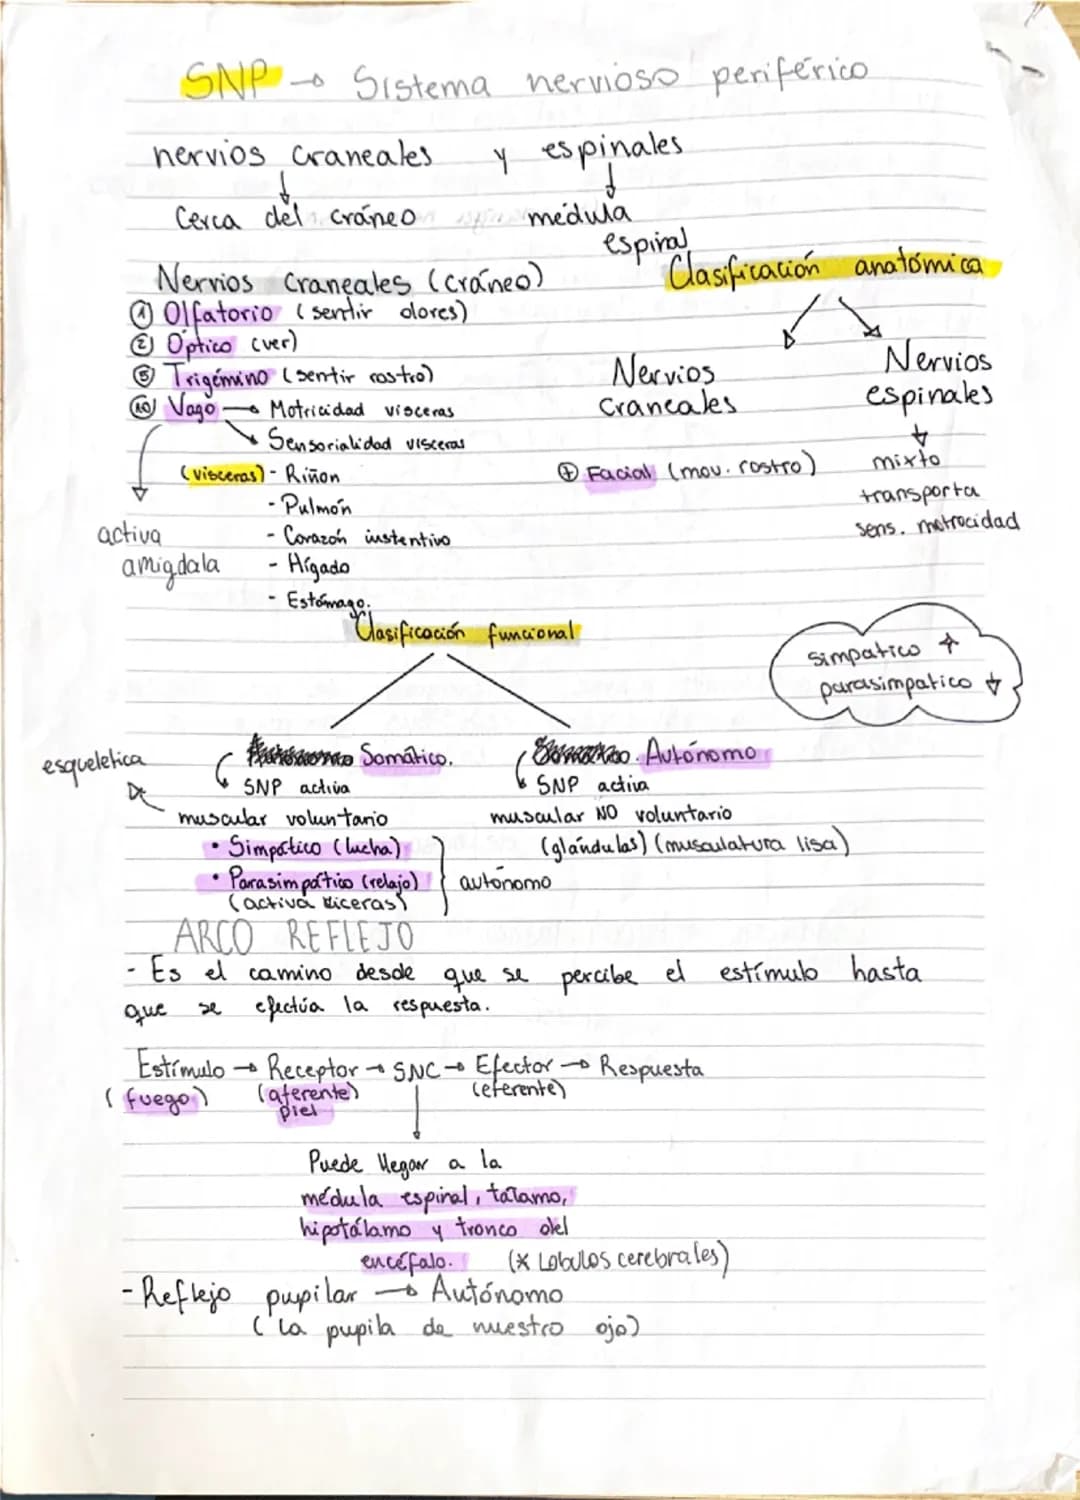 SNP → Sistema nervioso periférico
nervios craneales y espinales
↓ ↓
Cerca del cráneo médula
espinal
Clasificación anatómica
Nervios Craneales (cráneo)
① Olfatorio (sentir olores)
② Óptico (ver)
⑤ Trigémino (sentir rostro)
⑩ Vago → Motricidad visceras
Sensorialidad visceras
(visceras) - Riñon
- Pulmón
- Corazón instentivo
- Hígado
- Estómago.
activa
amigdala
Nervios
craneales
⑦ Facial (mov. rostro)
Nervios
espinales
↓
mixto
transporta
sens. motrocidad
Clasificación funcional
simpatico ↑
parasimpatico ↓
esqueletica
Somático.
SNP activa
muscular voluntario
• Simpático (lucha)
• Parasimpático (relajo)
(activa viceras)
autónomo
Autónomo
SNP activa
muscular NO voluntario
(glándulas) (musculatura lisa)
ARCO REFLEJO
- Es el camino desde que se percibe el estímulo hasta
que se efectúa la respuesta.
Estímulo → Receptor → SNC → Efector → Respuesta
(fuego) (aferente) (eferente)
piel
Puede llegar a la
médula espinal, tálamo,
hipotálamo y tronco del
encéfalo. (x Lobulos cerebrales)
- Reflejo pupilar → Autónomo
(la pupila de nuestro ojo)